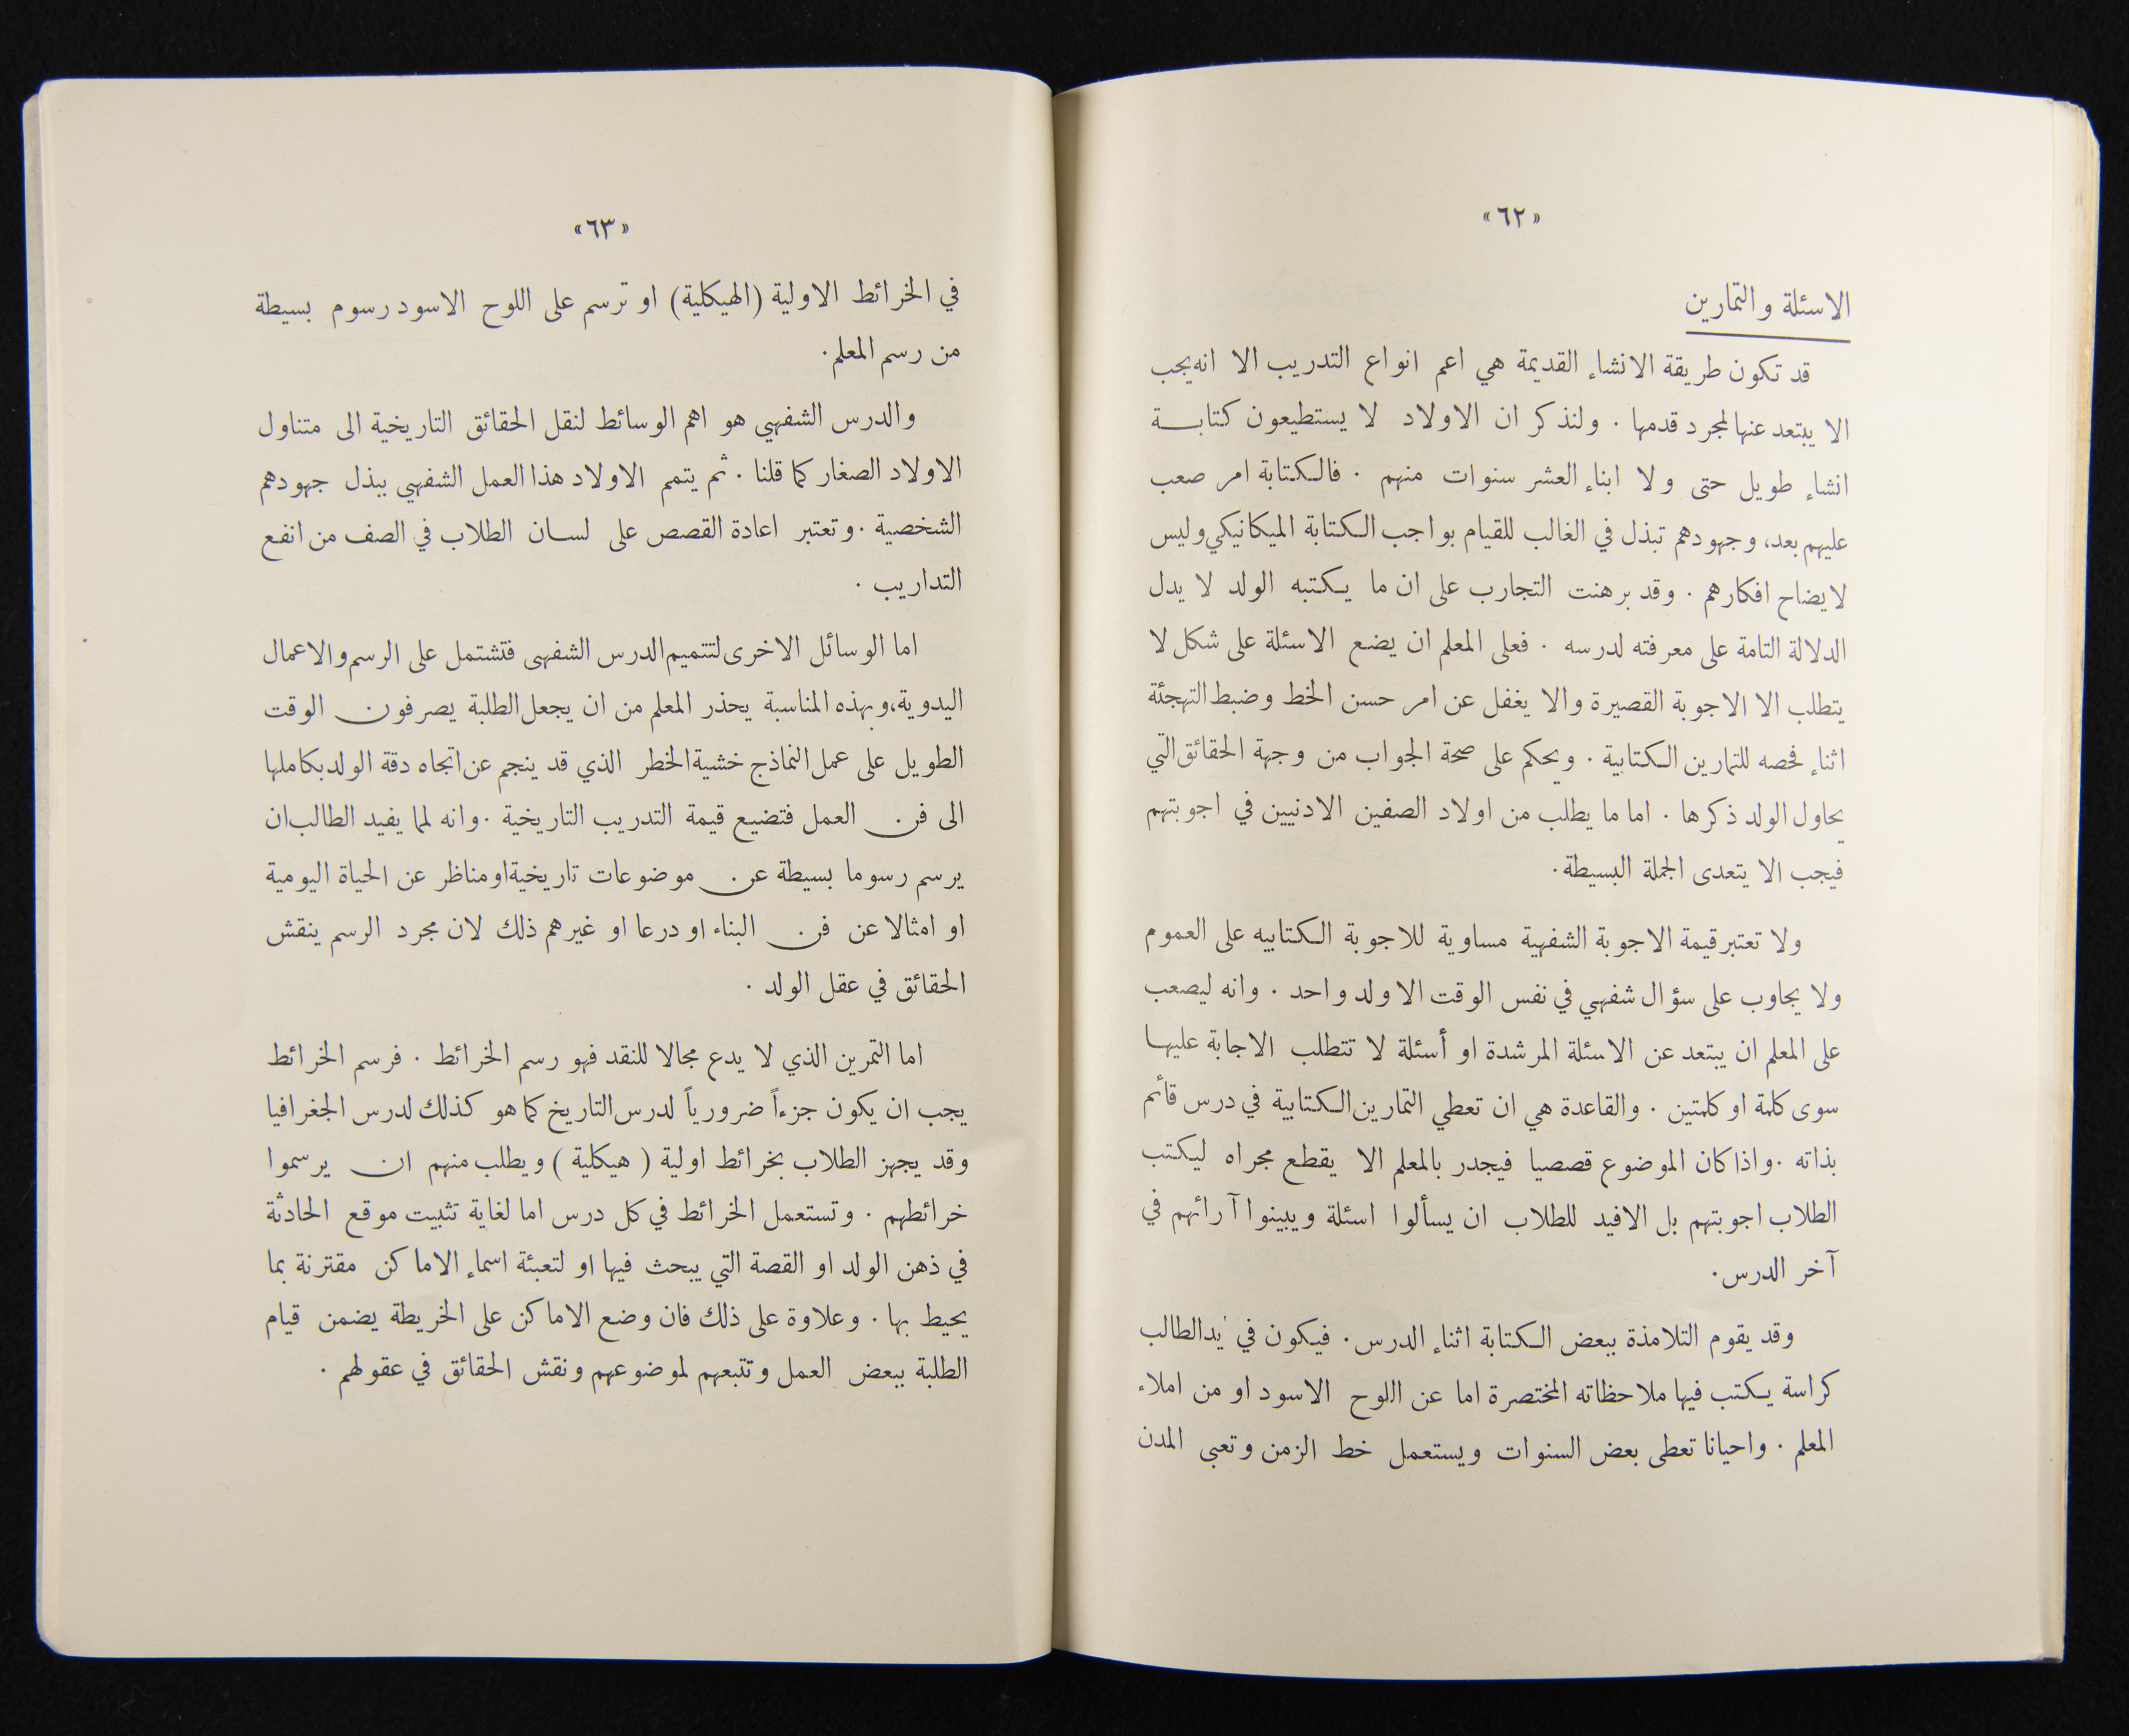 «٦٢»
الاسئلة والتمارين
قد تكون طريقة الانشاء القديمة هي اعم انواع التدريب الا انه يجب
الا يبتعد عنها لمجرد قدمها . ولنذكر ان الاولاد لا يستطيعون كتابـــة
انشاء طويل حتى ولا ابناء العشر سنوات منهم . فالكتابة امر صعب
عليهم بعد، وجهودهم تبذل في الغالب للقيام بواجب الكتابة الميكانيكي وليس
لايضاح افكارهم . وقد برهنت التجارب على ان ما يكتبه الولد لا يدل
الدلالة التامة على معرفته لدرسه . فعلى المعلم ان يضع الاسئلة على شكل لا
يتطلب الا الاجوبة القصيرة والا يغفل عن امر حسن الخط وضبط التهجئة
اثناء فحصه للتمارين الكتابية . ويحكم على صحة الجواب من وجهة الحقائق التي
يحاول الولد ذكرها . اما ما يطلب من اولاد الصفين الادنيين في اجوبتهم
فيجب الا يتعدى الجملة البسيطة.
ولا تعتبر قيمة الاجوبة الشفهية مساوية للاجوبة الكتابيه على العموم
ولا يجاوب على سؤال شفهي في نفس الوقت الا ولد واحد . وانه ليصعب
على المعلم ان يبتعد عن الاسئلة المرشدة او أسئلة لا تتطلب الاجابة عليهـا
سوى كلمة او كلمتين . والقاعدة هي ان تعطي التمارين الكتابية في درس قائم
بذاته . واذا كان الموضوع قصصيا فيجدر بالمعلم الا يقطع مجراه ليكتب
الطلاب اجوبتهم بل الافيد للطلاب ان يسألوا اسئلة ويبينوا آرائهم في
آخر الدرس.
وقد يقوم التلامذة ببعض الكتابة اثناء الدرس. فيكون في يد الطالب
كراسة يكتب فيها ملاحظاته المختصرة اما عن اللوح الاسود او من املاء
المعلم . واحيانا تعطى بعض السنوات ويستعمل خط الزمن وتعبى المدن
«٦٣»
في الخرائط الاولية (الهيكلية) او ترسم على اللوح الاسود رسوم بسيطة
من رسم المعلم.
والدرس الشفهي هو اهم الوسائط لنقل الحقائق التاريخية الى متناول
الاولاد الصغار كما قلنا . ثم يتمم الاولاد هذا العمل الشفهي ببذل جهودهم
الشخصية . وتعتبر اعادة القصص على لسان الطلاب في الصف من انفع
التداريب .
اما الوسائل الاخرى لتتميم الدرس الشفهى فتشتمل على الرسم والاعمال
اليدوية، وبهذه المناسبة يحذر المعلم من ان يجعل الطلبة يصرفون الوقت
الطويل على عمل النماذج خشية الخطر الذي قد ينجم عن اتجاه دقة الولد بكاملها
الى فن العمل فتضيع قيمة التدريب التاريخية . وانه لمما يفيد الطالب ان
يرسم رسوما بسيطة عن موضوعات تاريخية او مناظر عن الحياة اليومية
او امثالا عن فن البناء او درعا او غيرهم ذلك لان مجرد الرسم ينقش
الحقائق في عقل الولد .
اما التمرين الذي لا يدع مجالا للنقد فهو رسم الخرائط . فرسم الخرائط
يجب ان يكون جزءاً ضرورياً لدرس التاريخ كما هو كذلك لدرس الجغرافيا
وقد يجهز الطلاب بخرائط اولية ( هيكلية ) ويطلب منهم ان يرسموا
خرائطهم . وتستعمل الخرائط في كل درس اما لغاية تثبيت موقع الحادثة
في ذهن الولد او القصة التي يبحث فيها او لتعبئة اسماء الاماكن مقترنة بما
يحيط بها . وعلاوة على ذلك فان وضع الاماكن على الخريطة يضمن قيام
الطلبة ببعض العمل وتتبعهم لموضوعهم ونقش الحقائق في عقولهم .